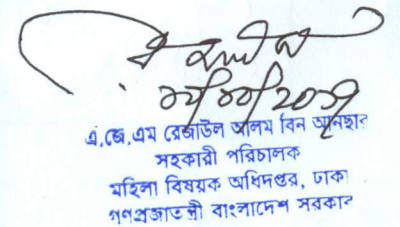 এ,জে,এম রেজাউল আলম বিন আনছার
সহকারী পরিচালক
মহিলা বিষয়ক অধিদপ্তর, ঢাকা
গণপ্রজাতন্ত্রী বাংলাদেশ সরকার